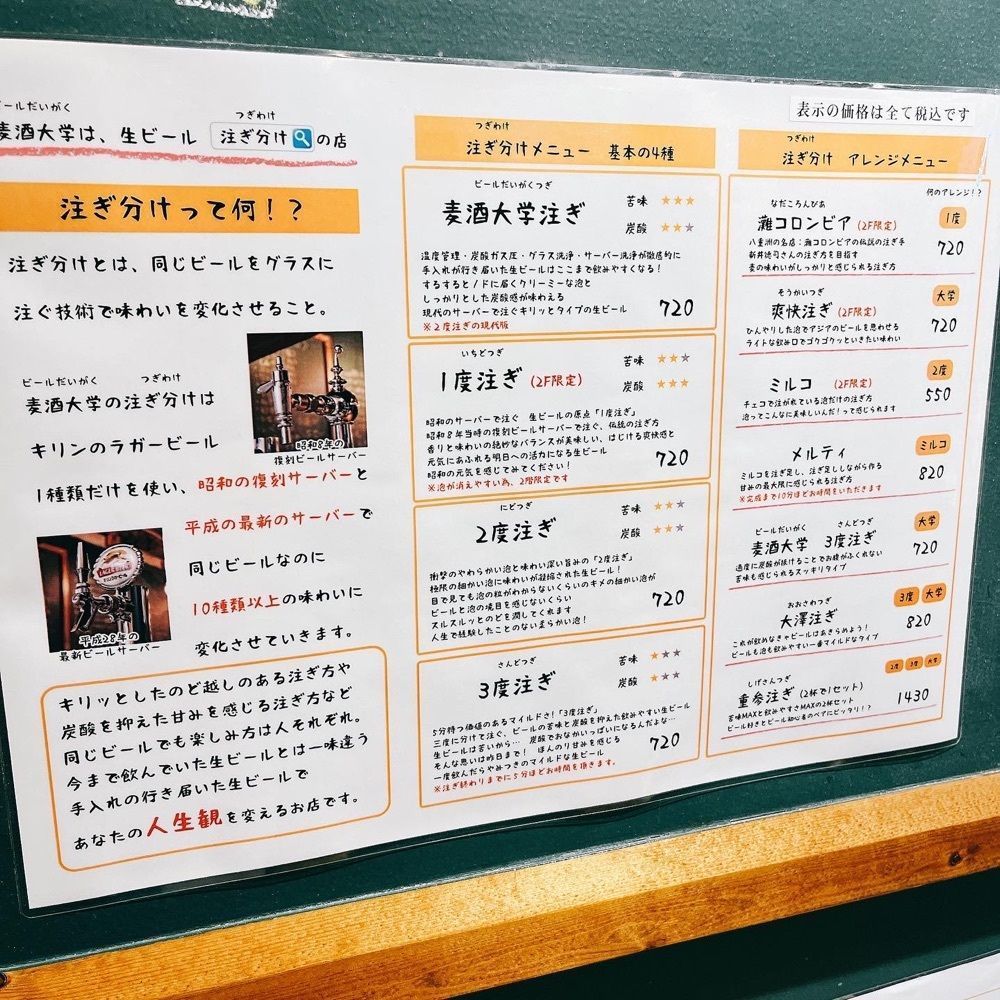 ビールだいがく
麦酒大学は、生ビール
つぎわけ
注ぎ分け
の店
注ぎ分けって何！？
注ぎ分けとは、同じビールをグラスに
注ぐ技術で味わいを変化させること。
ビールだいがく つぎわけ
麦酒大学の注ぎ分けは
キリンのラガービール
1種類だけを使い、昭和の復刻サーバーと
平成の最新のサーバーで
同じビールなのに
10種類以上の味わいに
変化させていきます。
昭和8年の
復刻ビールサーバー
平成28年の
最新ビールサーバー
キリッとしたのど越しのある注ぎ方や
炭酸を抑えた甘みを感じる注ぎ方など
同じビールでも楽しみ方は人それぞれ。
今まで飲んでいた生ビールとは一味違う
手入れの行き届いた生ビールで
あなたの人生観を変えるお店です。
つぎわけ
注ぎ分けメニュー 基本の4種
ビールだいがくつぎ
麦酒大学注ぎ
苦味 ★★★
炭酸 ★★★
温度管理・炭酸ガス圧・グラス洗浄・サーバー洗浄が徹底的に
手入れが行き届いた生ビールはここまで飲みやすくなる！
するするとノドに届くクリーミーな泡と
しっかりとした炭酸感が味わえる
現代のサーバーで注ぐキリッとタイプの生ビール
※2度注ぎの現代版
720
いちどつぎ
1度注ぎ (2F限定)
苦味 ★★★
炭酸 ★★★
昭和のサーバーで注ぐ 生ビールの原点「1度注ぎ」
昭和8年当時の復刻ビールサーバーで注ぐ、伝統の注ぎ方
香りと味わいの絶妙なバランスが美味しい、はじける爽快感と
元気にあふれる明日への活力になる生ビール
昭和の元気を感じてみてください！
※泡が消えやすい為、2階限定です
720
にどつぎ
2度注ぎ
苦味 ★★★
炭酸 ★★★
衝撃のやわらかい泡と味わい深い旨みの「2度注ぎ」
極限の細かい泡に味わいが凝縮された生ビール！
目で見ても泡の粒がわからないくらいのキメの細かい泡が
ビールと泡の境目を感じないくらい
スルスルッとのどを潤してくれます
人生で経験したことのない柔らかい泡！
720
さんどつぎ
3度注ぎ
苦味 ★★★
炭酸 ★★★
5分待つ価値のあるマイルドさ！「3度注ぎ」
三度に分けて注ぐ、ビールの苦味と炭酸を抑えた飲みやすい生ビール
生ビールは苦いから… 炭酸でおなかいっぱいになるんだよな…
そんな思いは昨日まで！ ほんのり甘みを感じる
一度飲んだらやみつきのマイルドな生ビール
※注ぎ終わりまでに5分ほどお時間を頂きます。
720
表示の価格は全て税込です
つぎわけ
注ぎ分け アレンジメニュー
何のアレンジ！？
なだころんびあ
灘コロンビア (2F限定)
1度
八重洲の名店：灘コロンビアの伝説の注ぎ手
新井徳司さんの注ぎ方を目指す
麦の味わいがしっかりと感じられる注ぎ方
720
そうかいつぎ
爽快注ぎ (2F限定)
大学
ひんやりした泡でアジアのビールを思わせる
ライトな飲み口でゴクゴクッといきたい味わい
720
ミルコ (2F限定)
2度
チェコで注がれている泡だけの注ぎ方
泡ってこんなに美味しいんだ！って感じられます
550
メルティ
ミルコ
ミルコを注ぎ足し、注ぎ足ししながら作る
甘みの最大限に感じられる注ぎ方
※完成まで10分ほどお時間をいただきます
820
ビールだいがく さんどつぎ
麦酒大学 3度注ぎ
大学
適度に炭酸が抜けることでお腹がふくれない
苦味も感じられるスッキリタイプ
720
おおさわつぎ
大澤注ぎ
3度 大学
これが飲めなきゃビールはあきらめよう！
ビールも泡も飲みやすい一番マイルドなタイプ
820
しげさんつぎ
重参注ぎ (2杯で1セット)
2度 3度 大学
苦味MAXと飲みやすさMAXの2杯セット
ビール好きとビール初心者のペアにピッタリ！？
1430